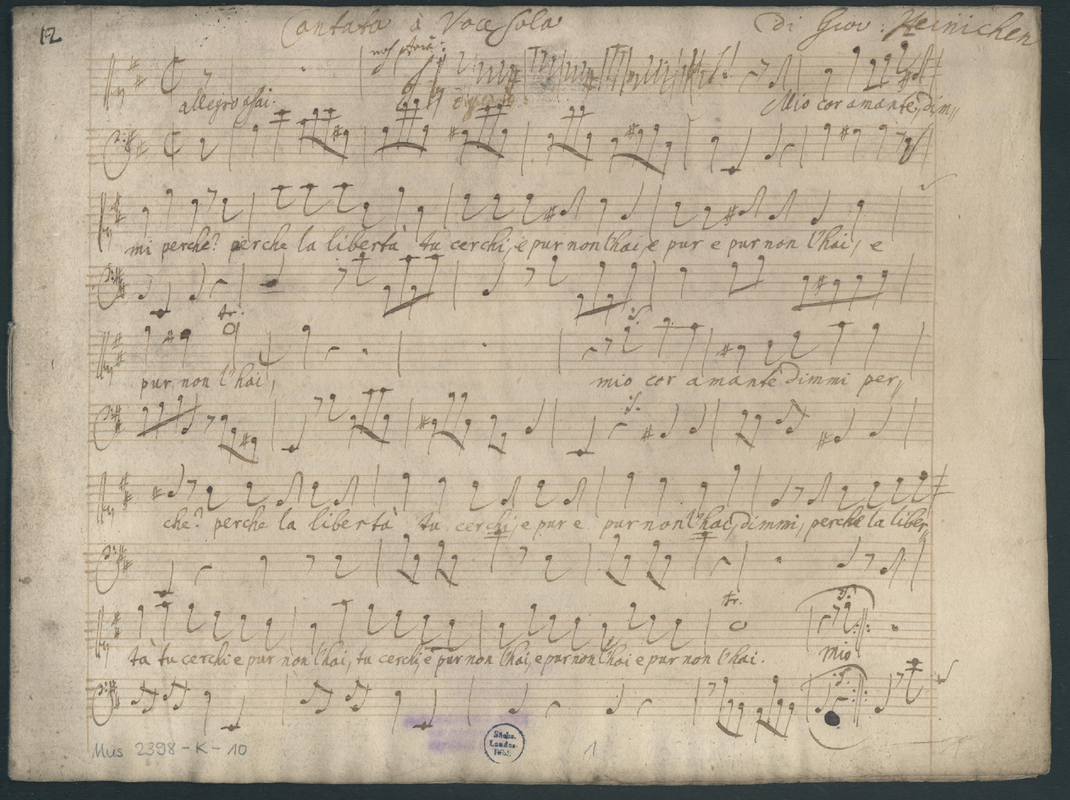 12
Cantata à Voce Sola Di Giov: Heinichen
allegro assai. Mio cor amante, dim,,
mi perche? perche la libertà tu cerchi, e pur non l'hai, e pur e pur non l'hai, e
tr.
pur non l'hai, mio cor amante dimmi per,,
che? perche la libertà tu cerchi, e pur e pur non l'hai, dimmi, perche la liber,,
tr.
tà tu cerchi e pur non l'hai, tu cerchi e pur non l'hai, e pur non l'hai e pur non l'hai. mio
Mus 2398-K-10 1
Sächs.
Landes-
Bibl.